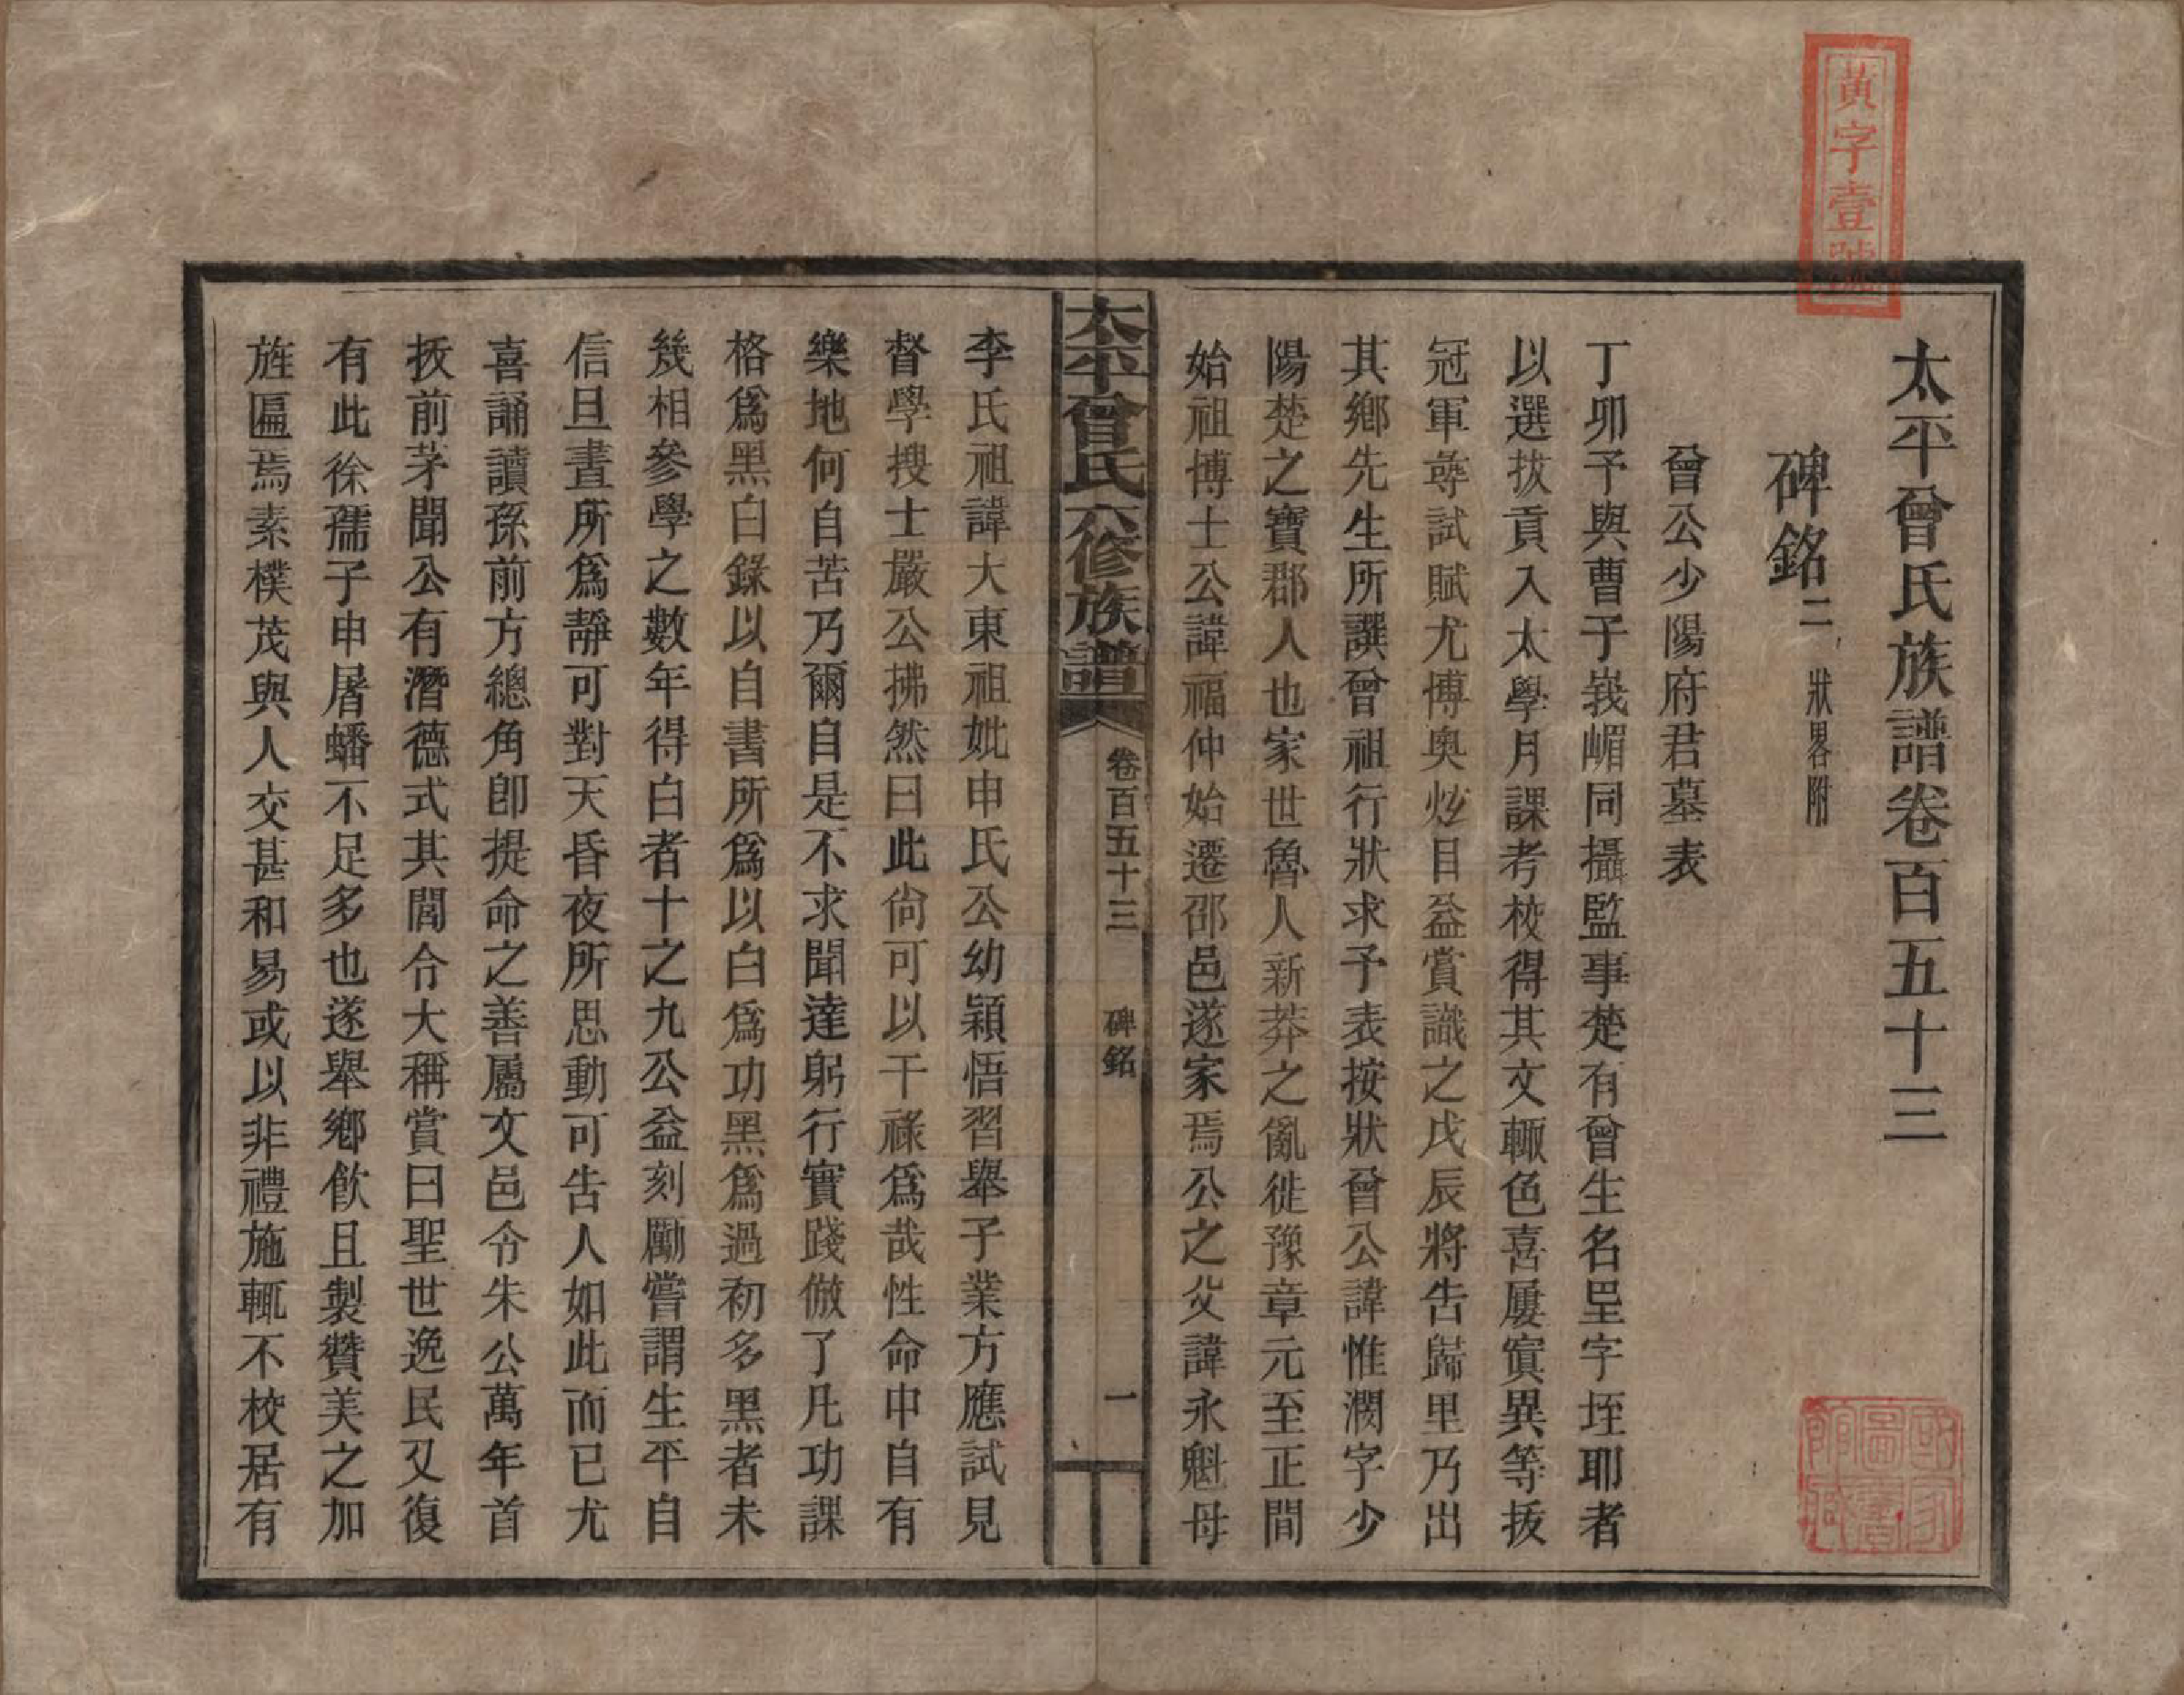 黃字壹號
太平曾氏族譜卷百五十三
碑銘二 狀畧附
曾公少陽府君墓表
丁卯予與曹于峩嵋同攝監事楚有曾生名垦字垤耶者
以選拔貢入太學月課考校得其文輙色喜屢寘異等拔
冠軍尊試賦尤博奥炫目益賞識之戊辰將告歸里乃出
其鄉先生所譔曾祖行狀求予表按狀曾公諱惟潤字少
陽楚之寶郡人也家世魯人新莽之亂徙豫章元至正間
始祖博士公諱福仲始遷邵邑遂家焉公之父諱永魁母
太平曾氏六修族譜
卷百五十三 碑銘 一
李氏祖諱大東祖妣申氏公幼穎悟習舉子業方應試見
督學搜士嚴公拂然曰此尙可以干祿爲哉性命中自有
樂地何自苦乃爾自是不求聞達躬行實踐倣了凡功課
格爲黑白錄以自書所爲以白爲功黑爲過初多黑者未
幾相參學之數年得白者十之九公益刻勵嘗謂生平自
信旦晝所爲靜可對天昏夜所思動可告人如此而已尤
喜誦讀孫前方總角卽提命之善屬文邑令朱公萬年首
拔前茅聞公有潛德式其閭令大稱賞曰聖世逸民又復
有此徐孺子申屠蟠不足多也遂舉鄉飮且製贊美之加
旌匾焉素樸茂與人交甚和易或以非禮施輒不校居有
國家圖書館藏